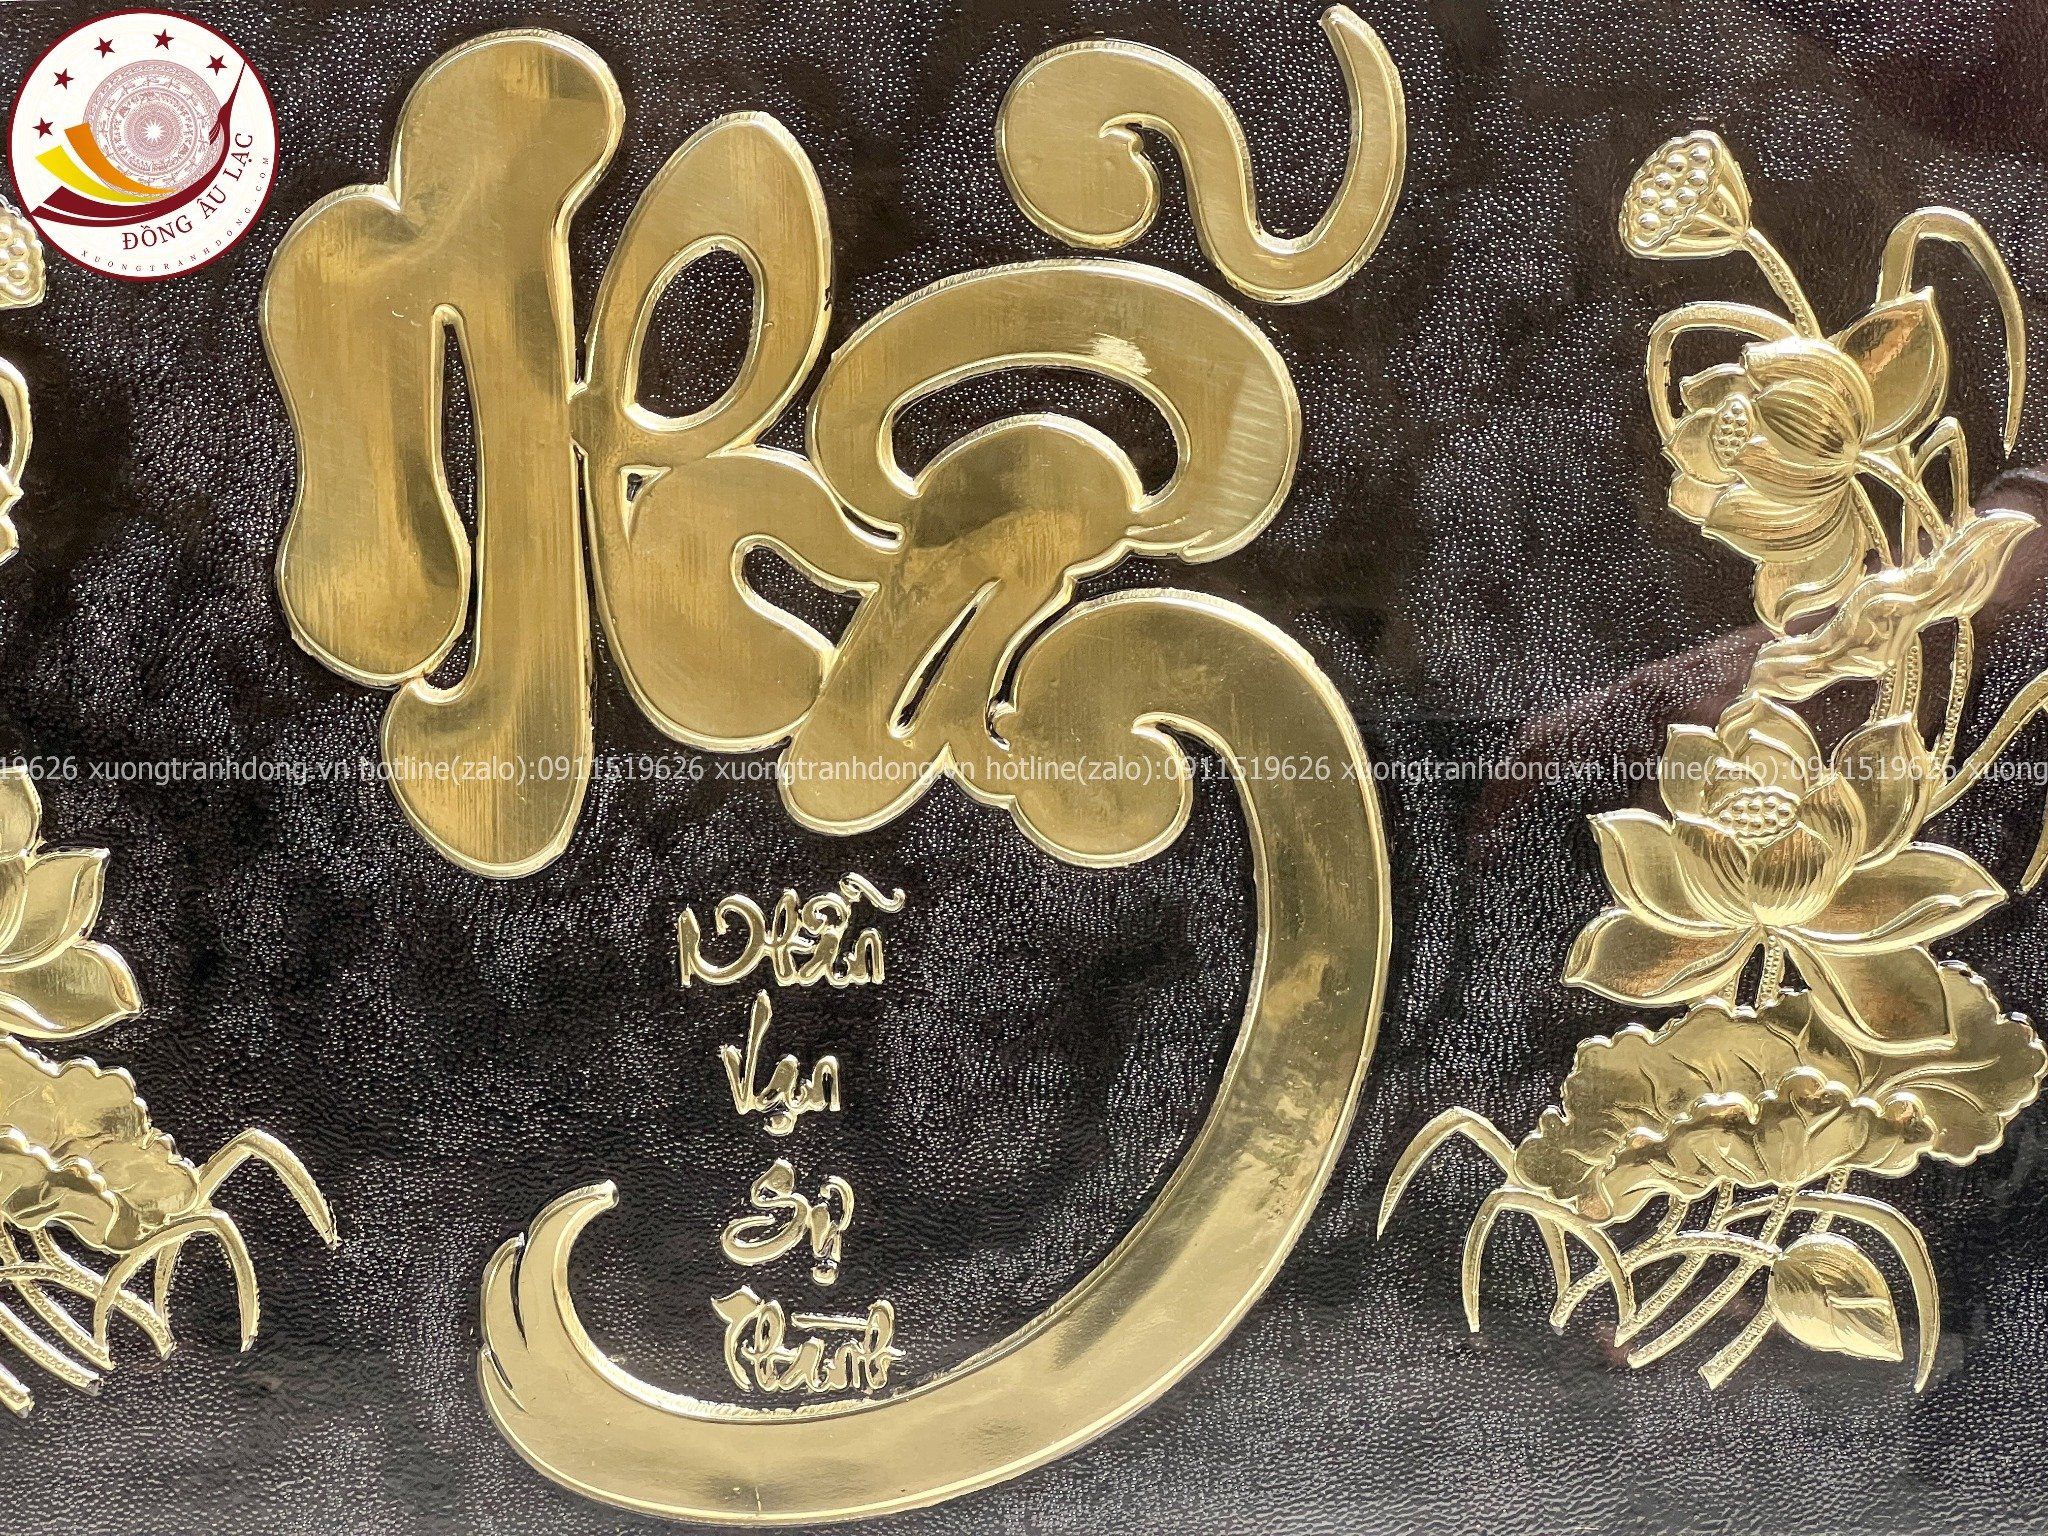 ĐÔNG ÂU LẠC
XUONGTRANHDONG.COM
Nhẫn
19626 xuongtranhdong.vn hotline(zalo):0911519626 xuongtranhdong.vn hotline(zalo):0911519626 xuongtranhdong.vn hotline(zalo):0911519626 xuong
Nhẫn
Vạn
Sự
Thành